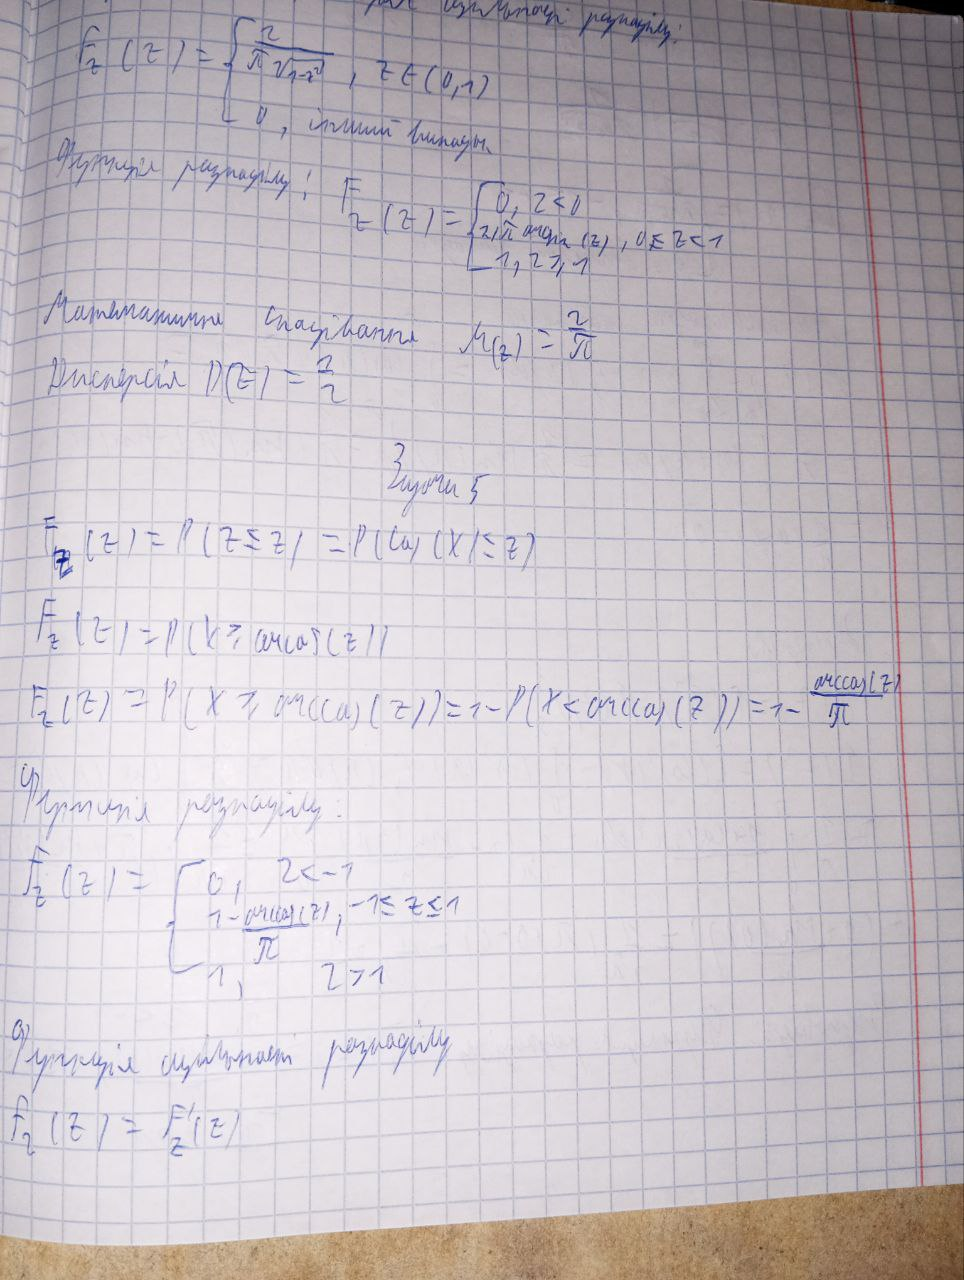 щільності розподілу:
f_z(z) = { 2/(π√(1-z²)), z ∈ (0,1)
0, інший випадок.
Функція розподілу: F_z(z) = { 0, z < 0
2/π arcsin(z), 0 ≤ z < 1
1, z ≥ 1
Математичне сподівання M(z) = 2/π
Дисперсія D(z) =
Задача 5
F_z(z) = P(Z ≤ z) = P(cos(X) ≤ z)
F_z(z) = P(X ≥ arccos(z))
F_z(z) = P(X ≥ arccos(z)) = 1 - P(X < arccos(z)) = 1 - arccos(z)/π
Функція розподілу:
F_z(z) = { 0, z < -1
1 - arccos(z)/π, -1 ≤ z ≤ 1
1, z > 1
Функція щільності розподілу
f_z(z) = F'_z(z)